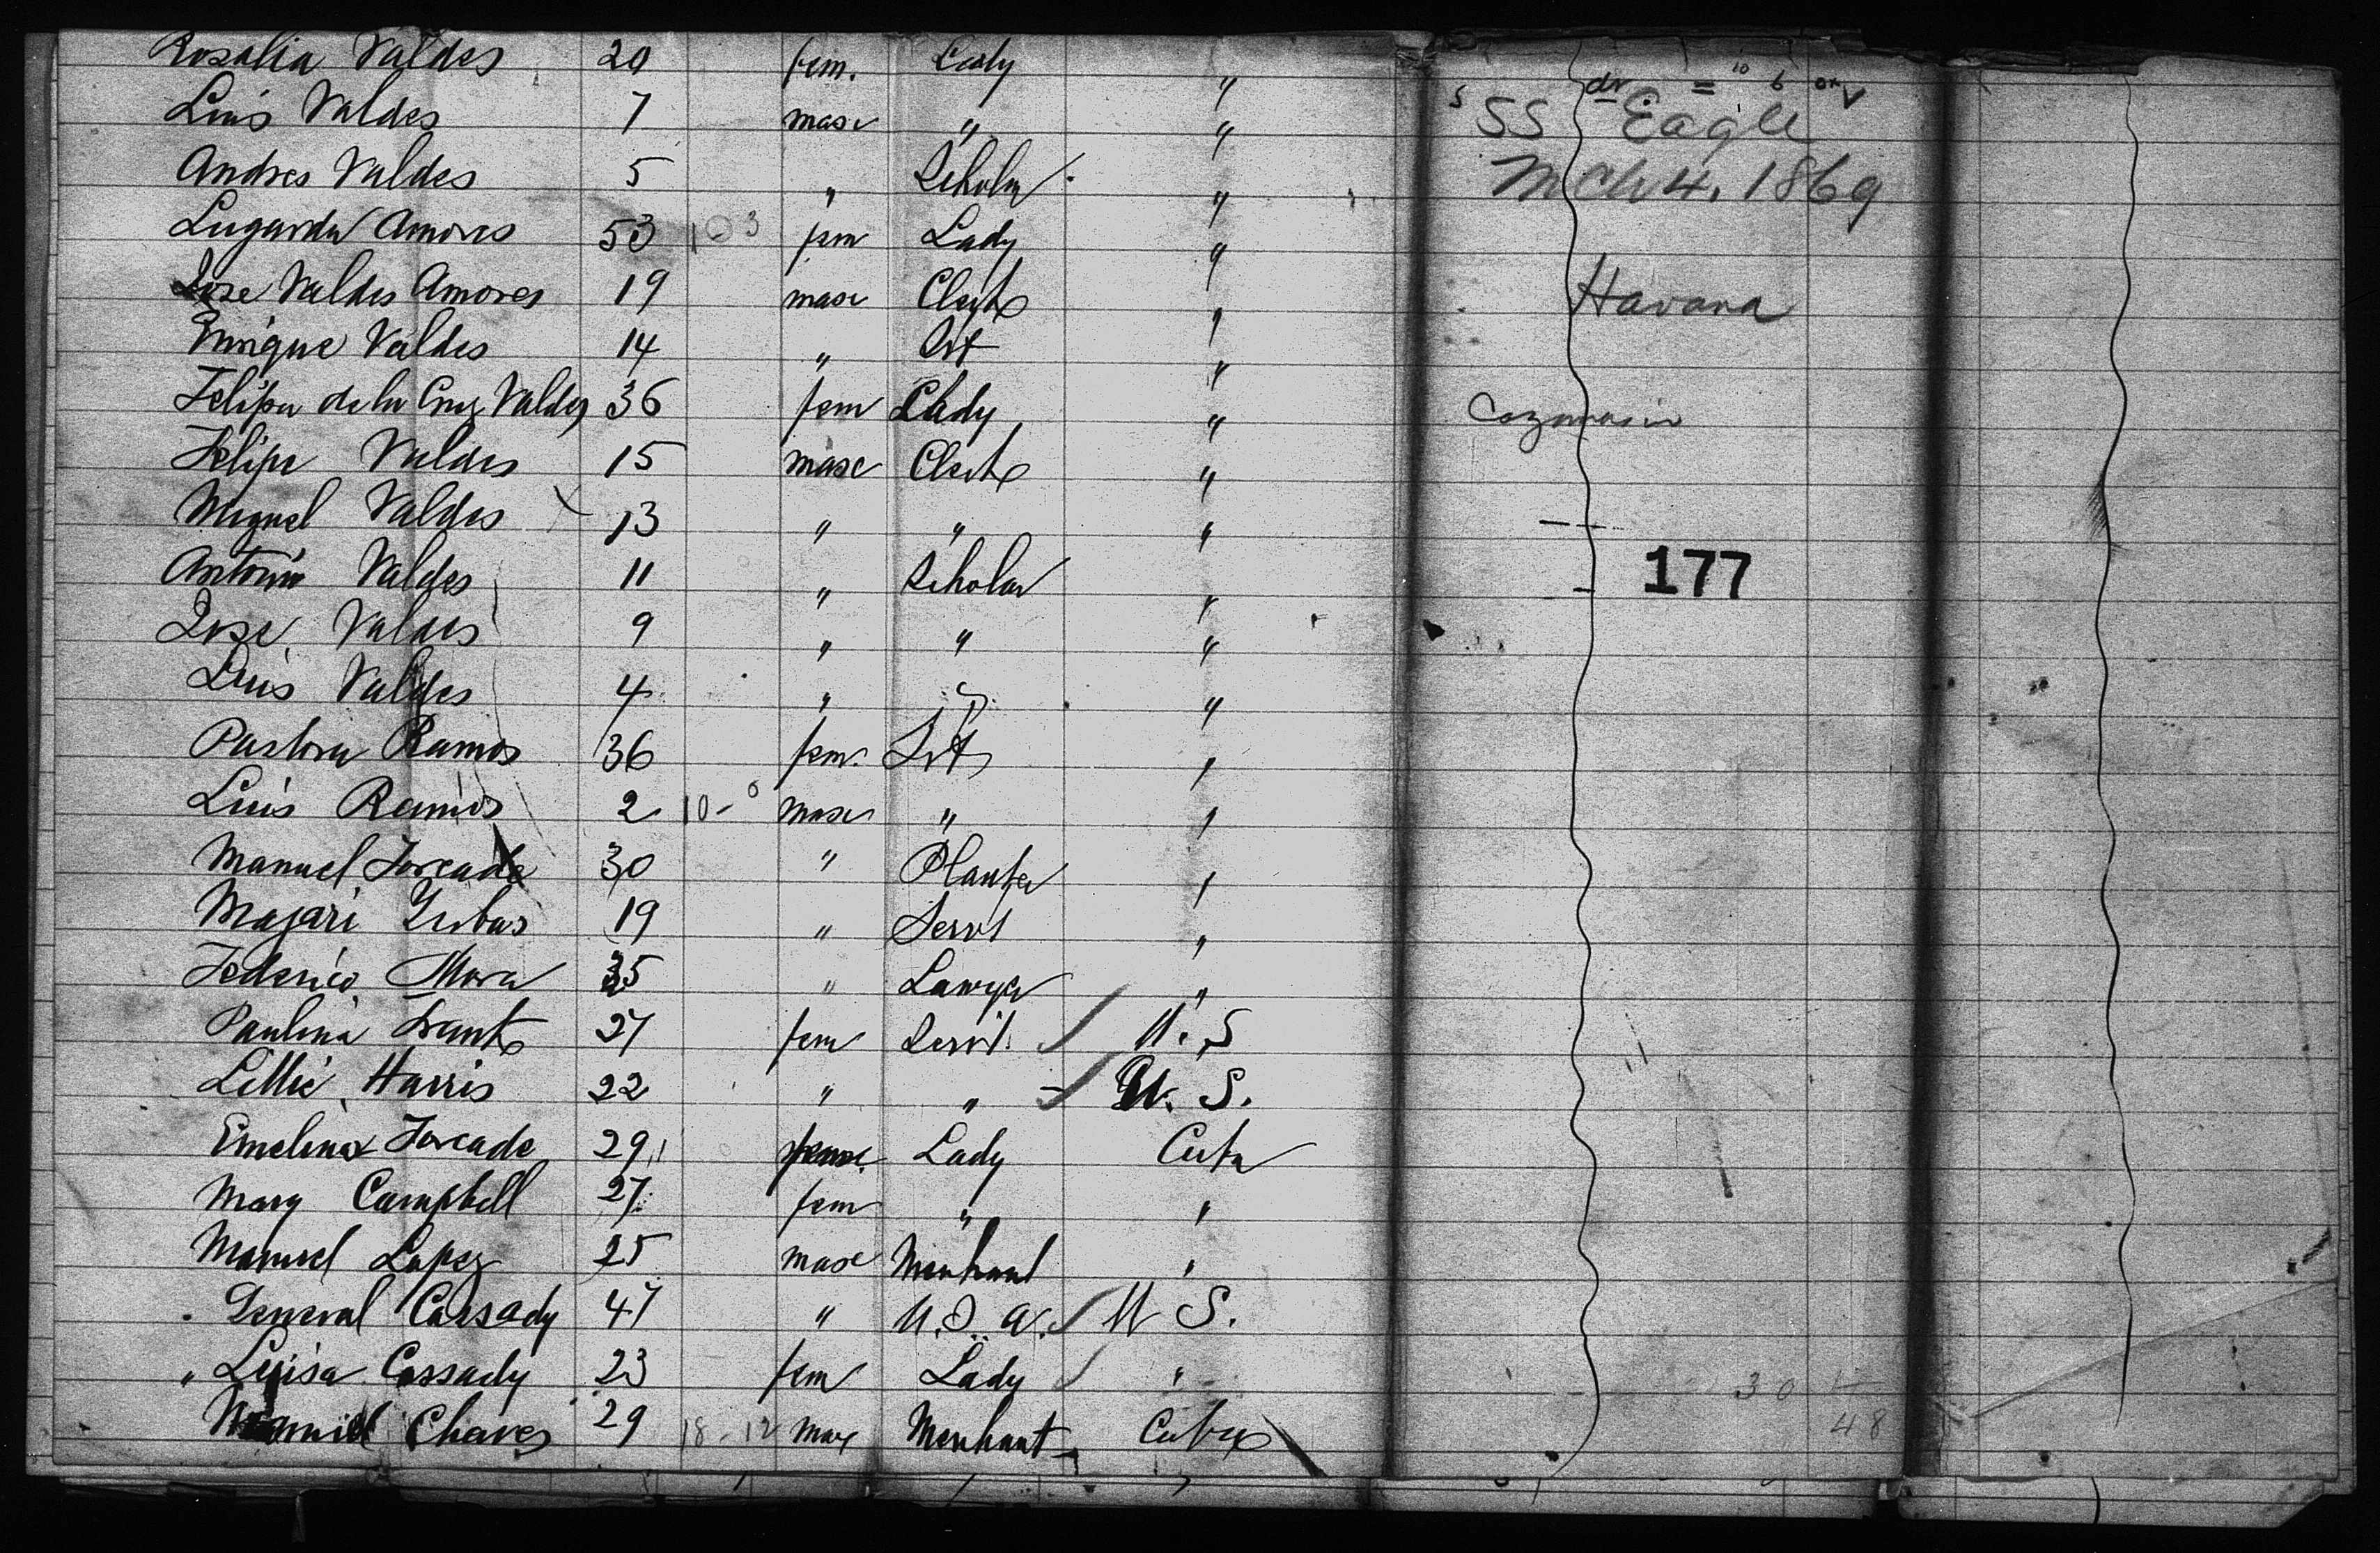 Rosalia Valdes 20 fem. Lady "
Luis Valdes 7 masc " "
Andres Valdes 5 " Scholar "
Lugarda Amores 53 103 fem Lady "
Jose Valdes Amores 19 masc Clerk "
Enrique Valdes 14 " "
Felipa de la Cruz Valdes 36 fem Lady "
Felipe Valdes 15 masc Clerk "
Miguel Valdes 13 " " "
Antonio Valdes 11 " Scholar "
Jose Valdes 9 " " "
Luis Valdes 4 " "
Pastora Ramos 36 fem. "
Luis Ramos 2 10-0 masc " "
Manuel Forcade 30 " Planter "
19 " Servt "
Federico Mora 35 " Lawyer "
Paulina 27 fem Servt. U. S
Lillie Harris 22 " " U. S.
Emelina Forcade 29 Lady Cuba
Mary Campbell 27 fem " "
Manuel Lopez 25 masc Merchant "
General Cassady 47 " U.S.A. U S.
" Luisa Cassady 23 fem Lady "
Manuel Chaves 29 18-12 masc Merchant Cuba
SS Eagle
Mch 4. 1869
Havana
177
30
48